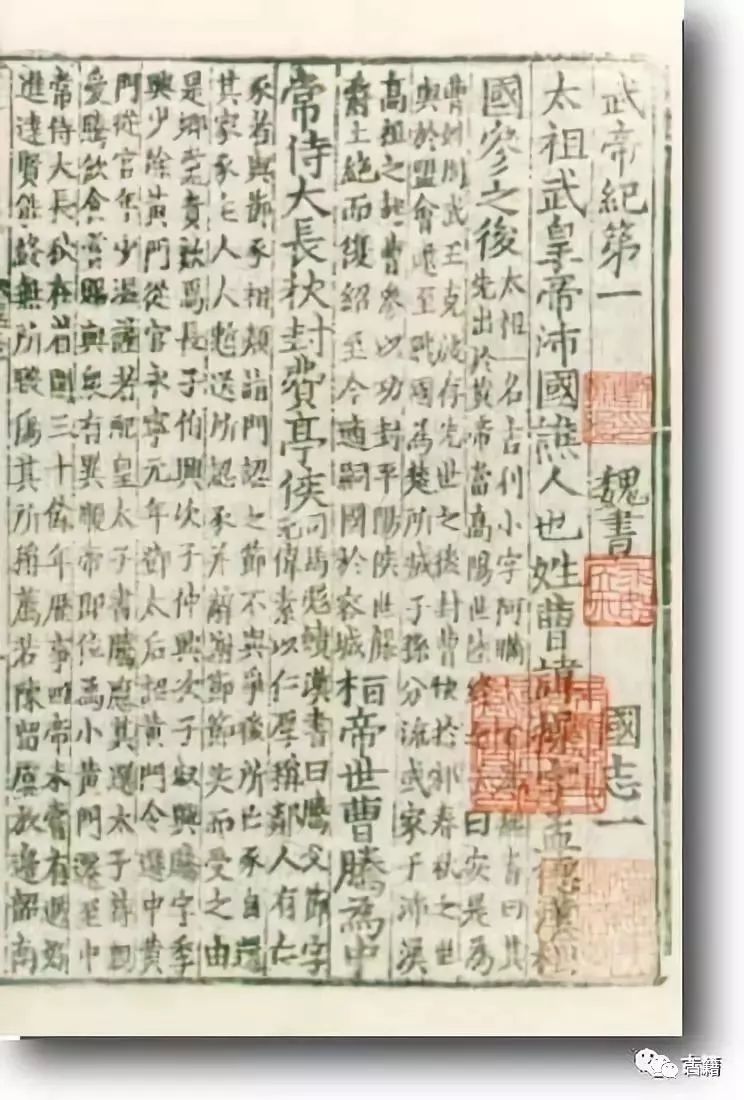 武帝紀第一 魏書 國志一
太祖武皇帝沛國譙人也姓曹諱操字孟德漢相
國參之後
太祖一名吉利小字阿瞞書曰其
先出於黃帝當高陽世陸終曰安是為
曹姓周武王克殷存先世之後封曹俠於邾春秋之世
與於盟會逮至戰國為楚所滅子孫分流或家于沛漢
高祖之起曹參以功封平陽侯世襲
爵土絕而復紹至今適嗣國於容城
桓帝世曹騰為中
常侍大長秋封費亭侯
司馬彪續漢書曰騰父節字
元偉素以仁厚稱鄰人有亡
豕者與節豕相類詣門認之節不與爭後所亡豕自還
其家豕主人大慙送所認豕并辭謝節節笑而受之由
是鄉黨貴歎焉長子伯興次子仲興次子叔興騰字季
興少除黃門從官永寧元年鄧太后詔黃門令選中黃
門從官年少溫謹者配皇太子書騰應其選太子特親
愛騰飲食賞賜與眾有異順帝即位為小黃門遷至中
常侍大長秋在省闥三十餘年歷事四帝未嘗有過好
進達賢能終無所毀傷其所稱薦若陳留虞放邊韶南
古籍